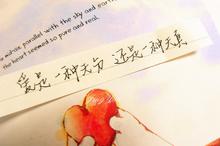 parallel with the sky and earth
the heart seemed so pure and real.
爱是一种天分 还是一种天真